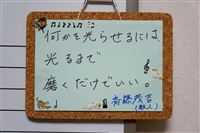 何かを光らせるには
光るまで
磨くだけでいい。
斎藤茂吉
(歌人)